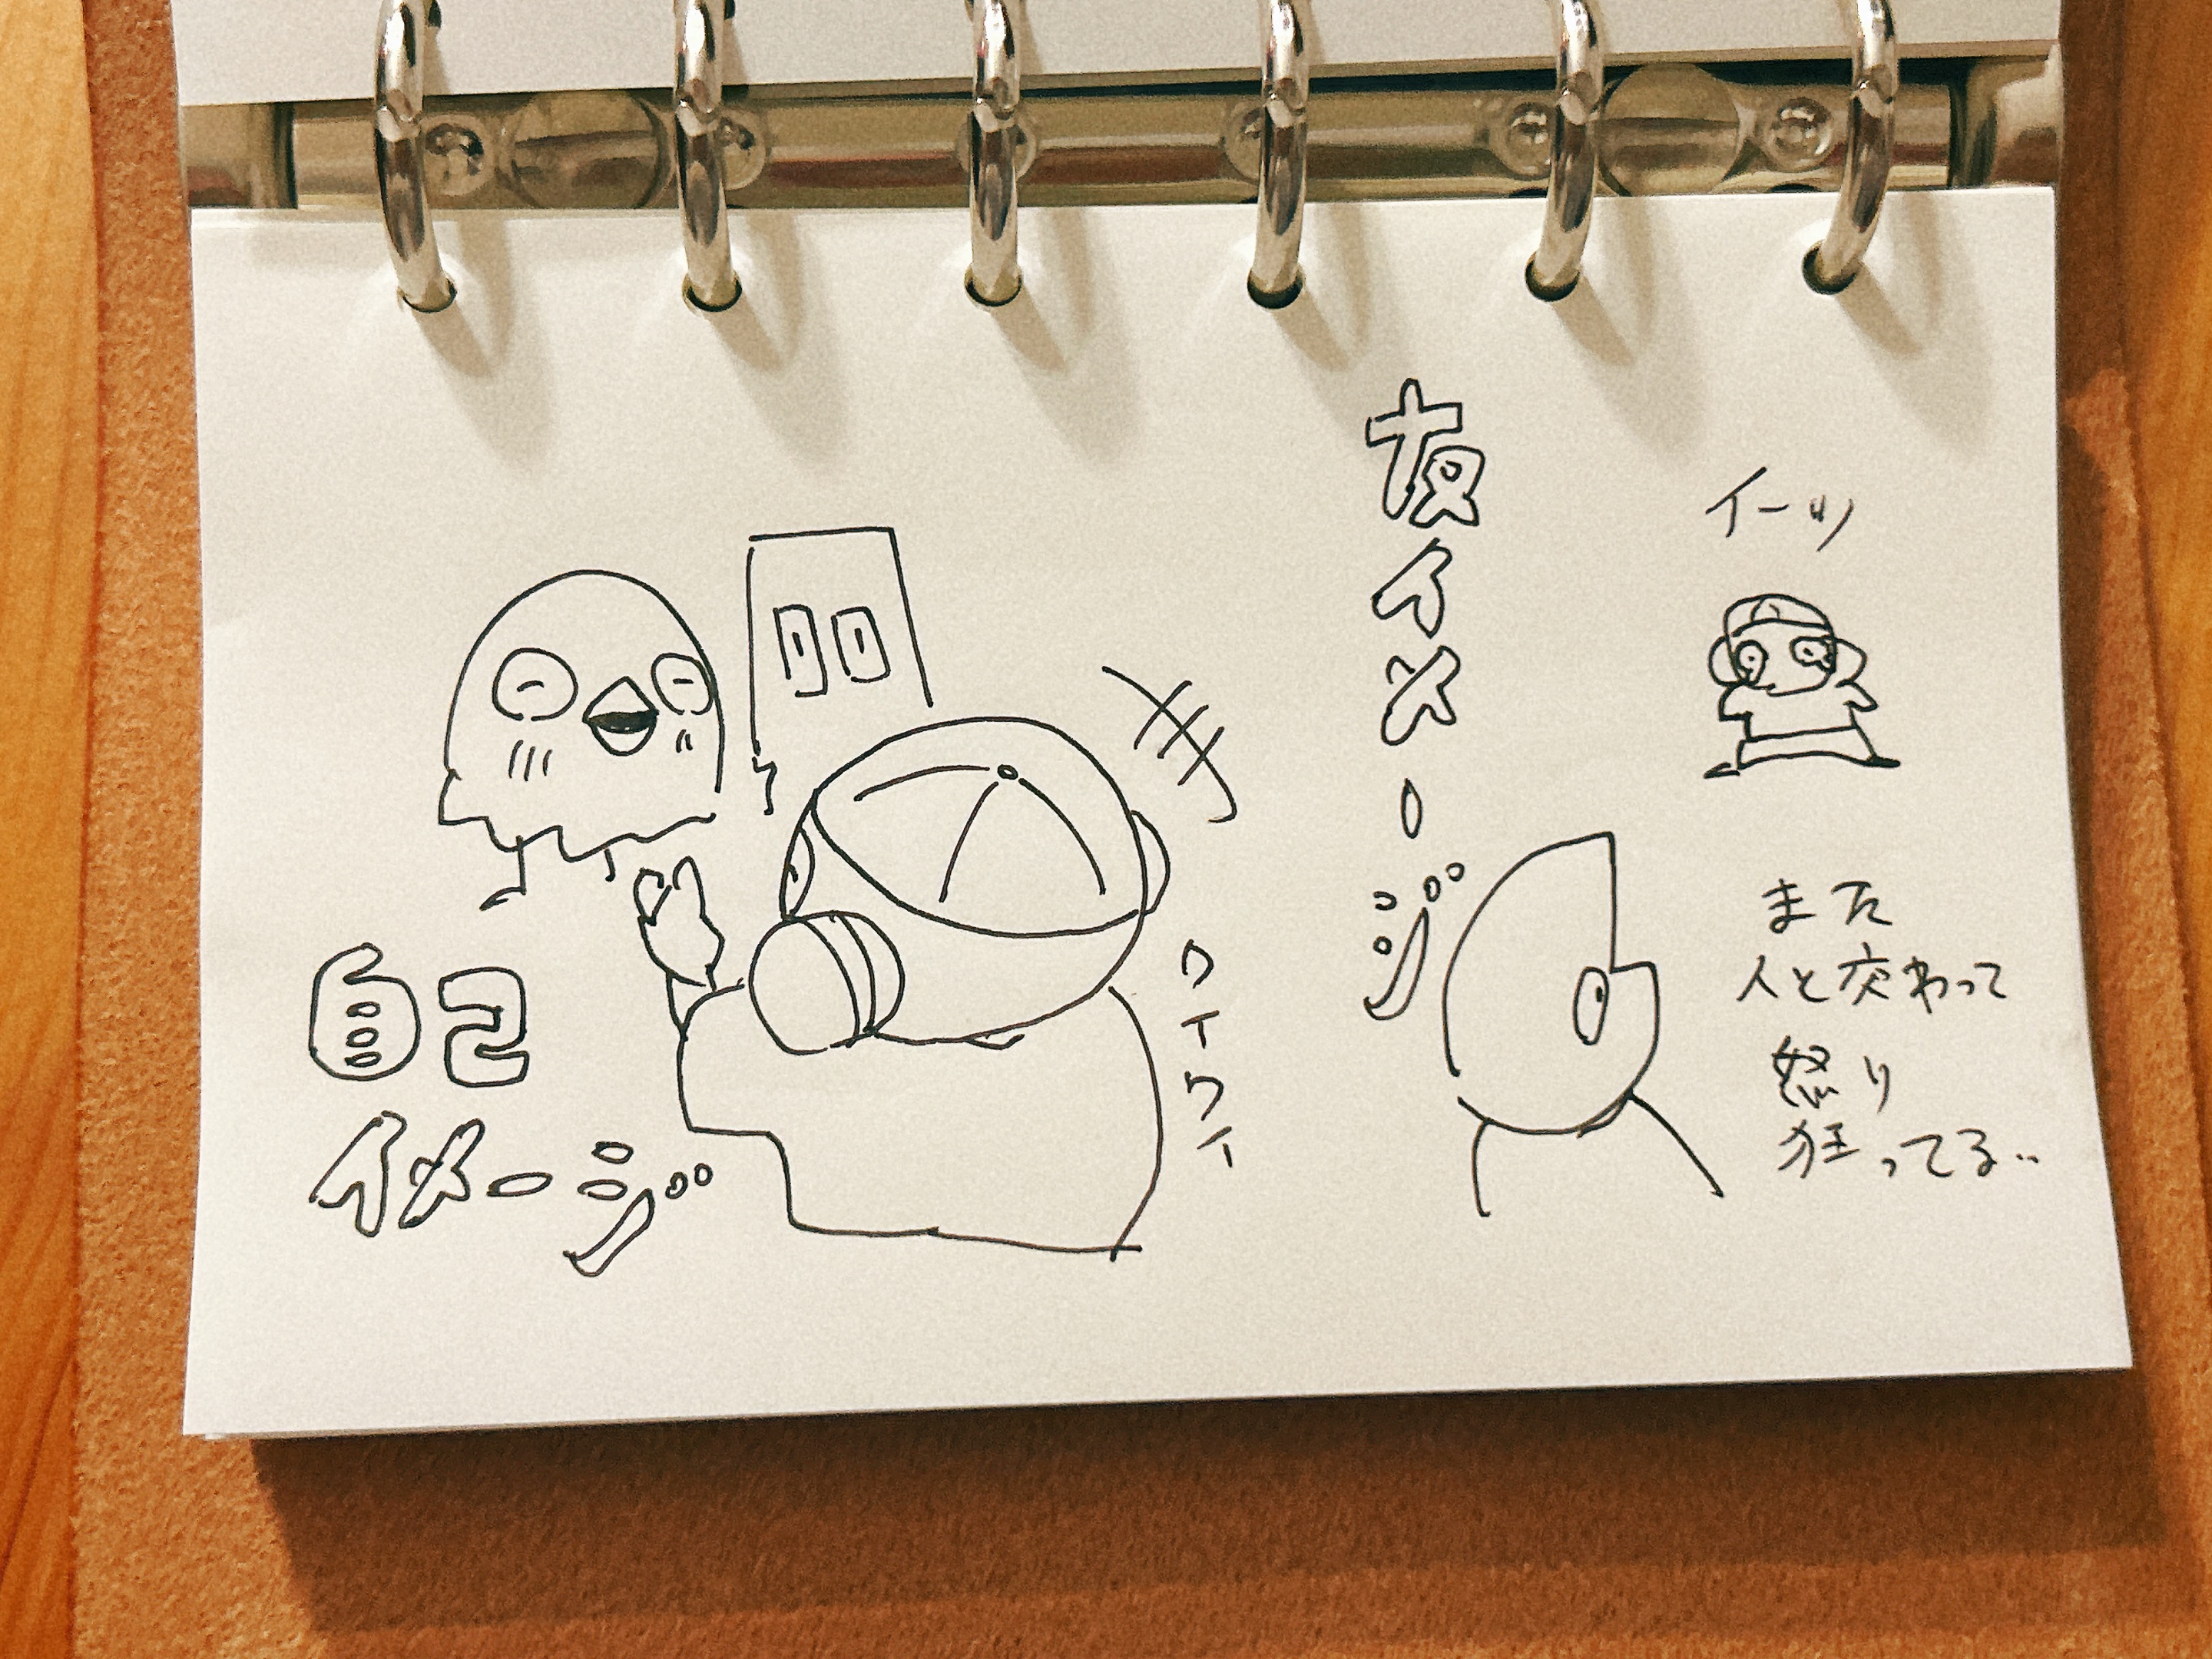 自己
イメージ
ワイワイ
友イメージ
イーッ
また
人と交わって
怒り
狂ってる..